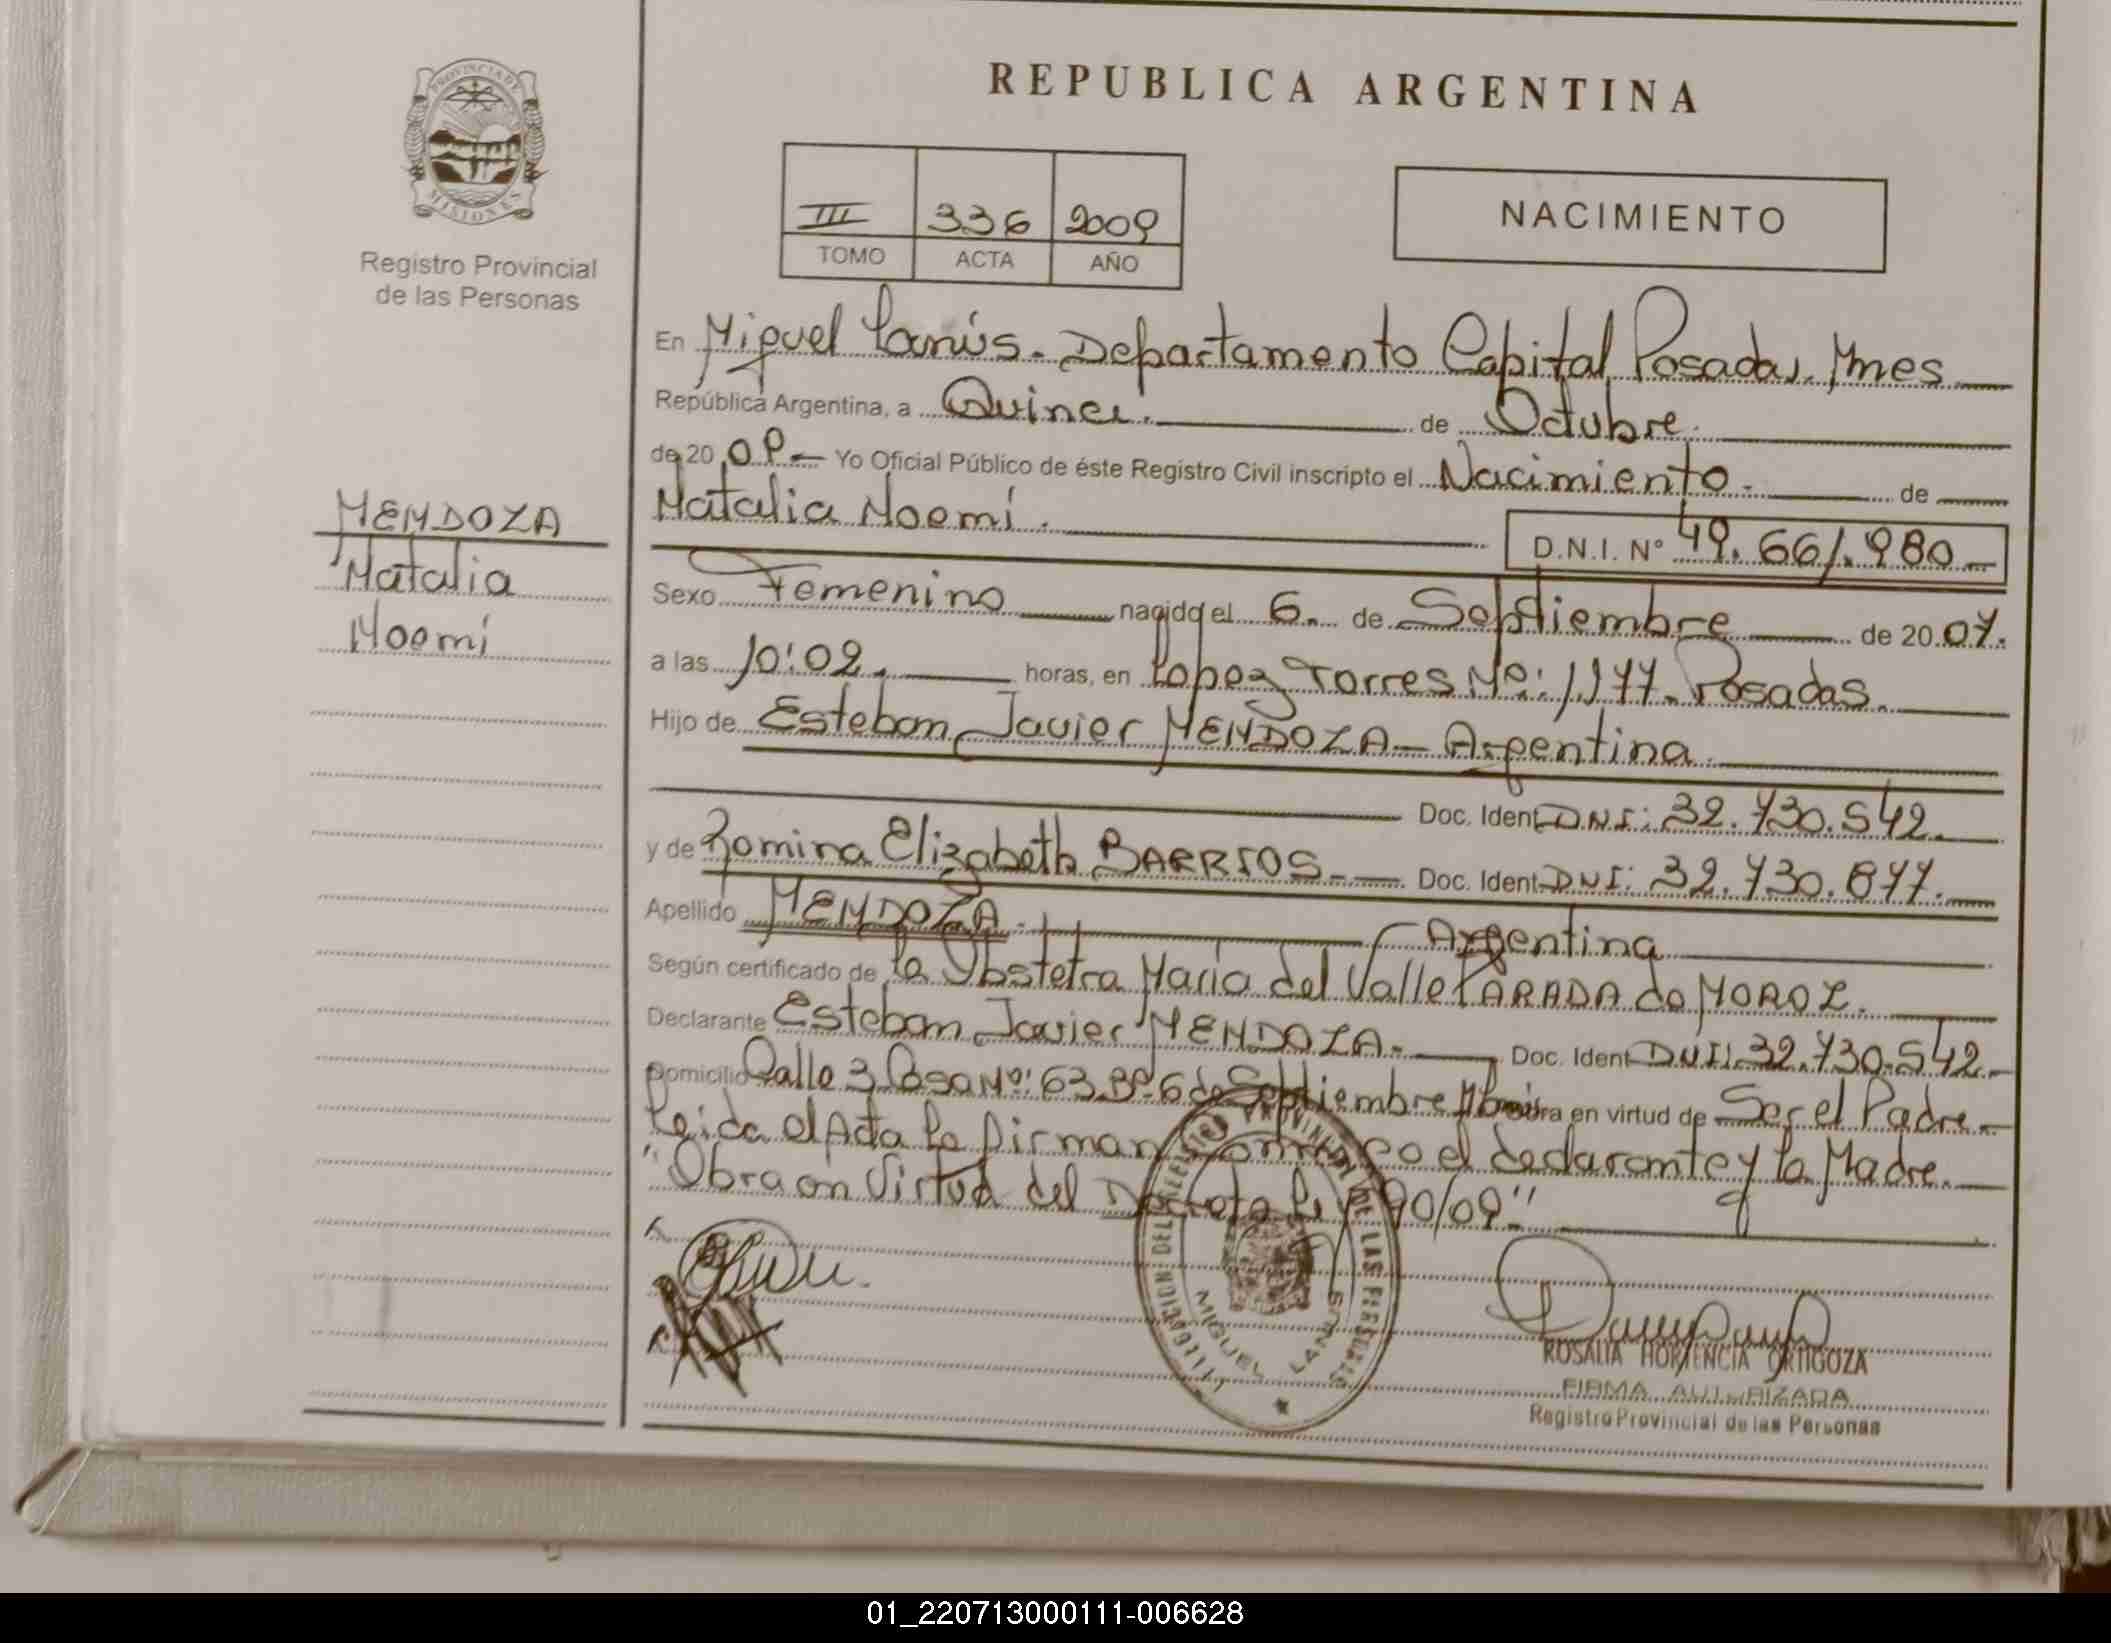 REPUBLICA ARGENTINA
PROVINCIA DE
MISIONES
Registro Provincial
de las Personas
III 336 2009
TOMO ACTA AÑO
NACIMIENTO
En Miguel Lanús.- Departamento Capital Posadas. Mnes
República Argentina, a Quince. de Octubre.
de 20 09.- Yo Oficial Público de éste Registro Civil inscripto el Nacimiento. de
MENDOZA
Natalia
Noemí
Natalia Noemí.
D.N.I. Nº 49.661.980
Sexo Femenino nacido el 6. de Septiembre de 20 07.
a las 10:02. horas, en Lopez Torres Nº: 1177. Posadas.
Hijo de Esteban Javier MENDOZA - Argentina.
Doc. Ident. DNI: 32.730.542.
y de Romina Elizabeth BARRIOS.- Doc. Ident. DNI: 32.730.877.
Apellido MENDOZA. Argentina
Según certificado de la Obstetra Maria del Valle PARADA de MOROZ.
Declarante Esteban Javier MENDOZA.- Doc. Ident. DNI: 32.730.542.
Domicilio Calle 3 Casa Nº: 63 Bº 6 de Septiembre obra en virtud de Ser el Padre.
Leida el Acta la firman conmigo el declarante y la Madre.
"Obra en Virtud del Decreto 90/09."
DELEGACION DEL REGISTRO PROVINCIAL DE LAS PERSONAS
MIGUEL LANUS
ROSALIA HORTENCIA ORTIGOZA
FIRMA AUTORIZADA
Registro Provincial de las Personas
01_220713000111-006628